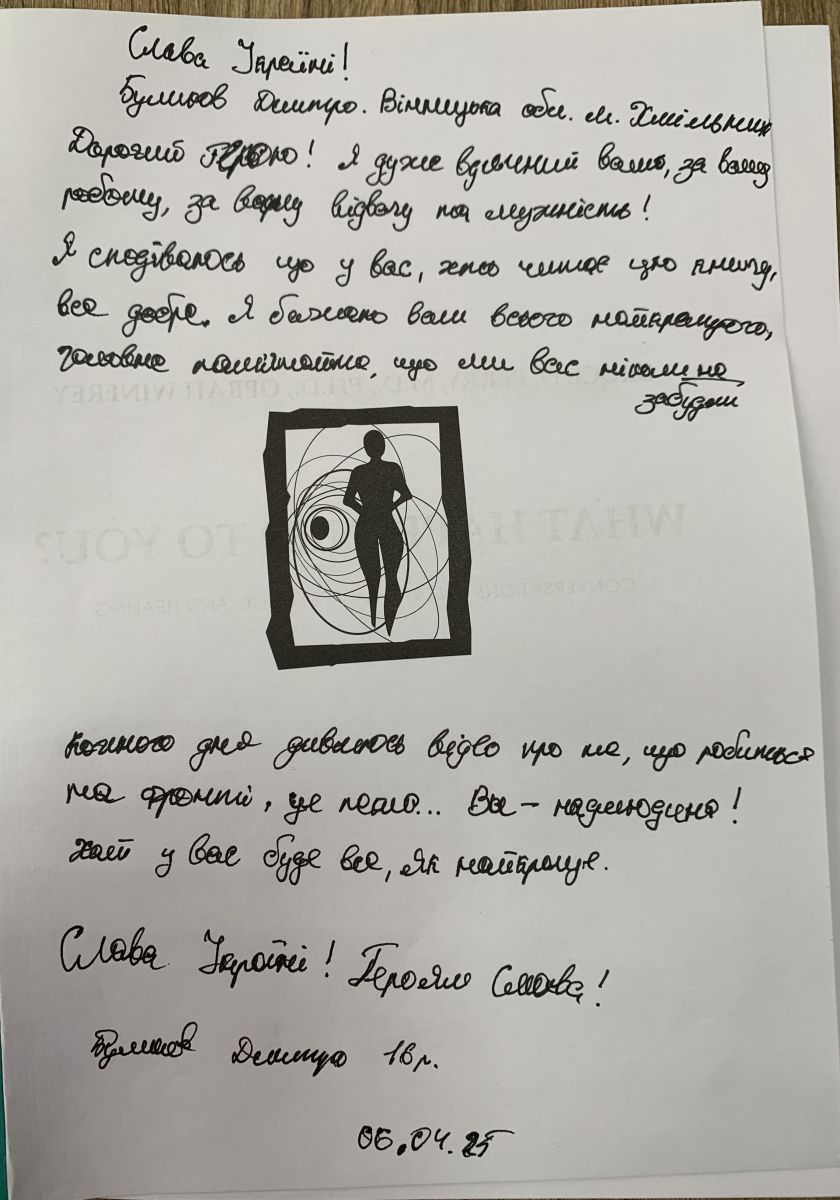 Слава Україні!
Буликов Дмитро. Вінницька обл. м. Хмільник
Дорогий Герою! Я дуже вдячний вам, за вашу
роботу, за вашу відвагу та мужність!
Я сподіваюсь що у вас, хто читає цю книгу,
все добре. Я бажаю вам всього найкращого,
головне памʼятайте, що ми вас ніколи не
забудем
Кожного дня дивлюсь відео про те, що робиться
на фронті, це пекло... Ви - надлюдина!
Хай у вас буде все, як найкраще.
Слава Україні! Героям Слава!
Дмитро 18 р.
06.04.25